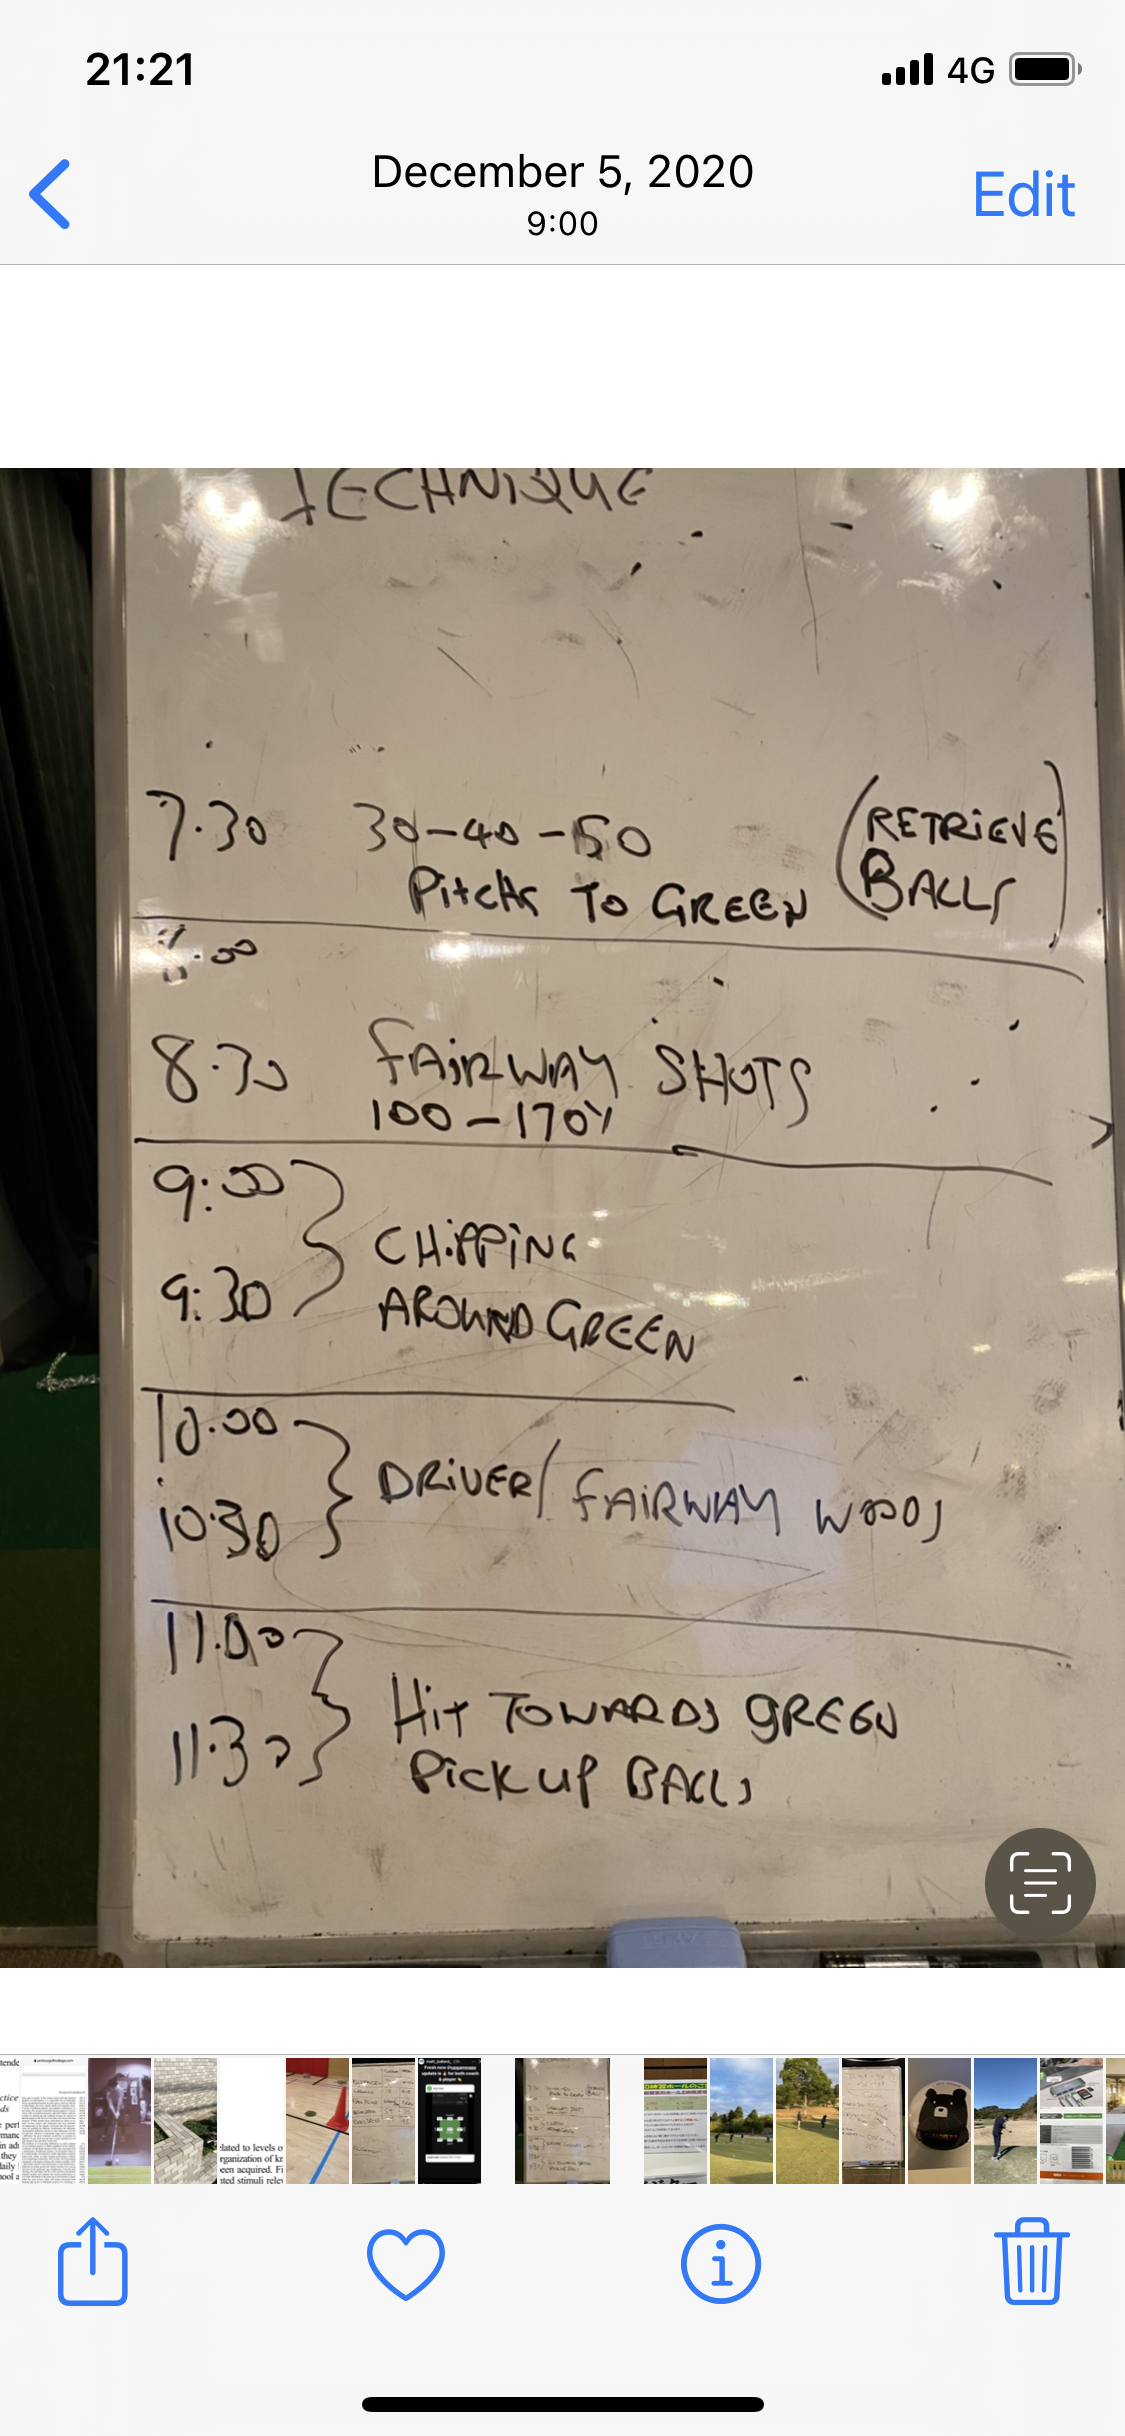 21:21
4G
December 5, 2020
9:00
Edit
TECHNIQUE
7.30 30-40-50 (RETRIEVE
PitcHs TO GREEN BALLS)
8.00
8.30 FAiRWAY SHOTS
100-170Y
9:00
CHiPPiNG
9:30 AROUND GREEN
10.00
DRiVER/FAiRWAY WOODS
10.30
11.00
HiT TOWARDS GREEN
11.30 PiCK UP BALLS